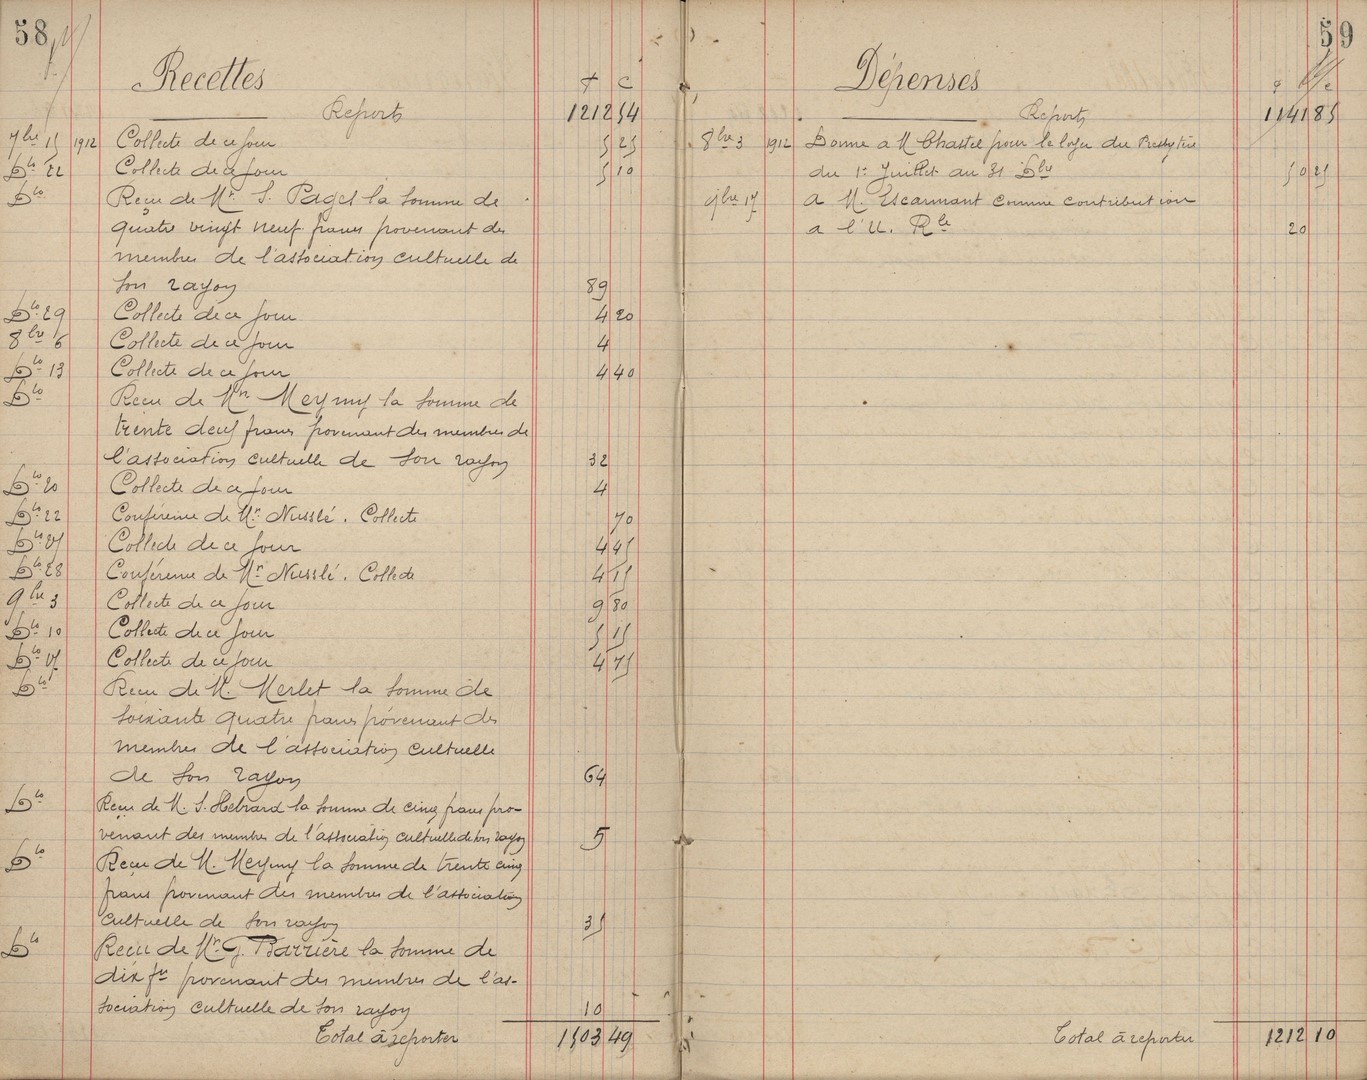 58
Recettes
f c
Report 1212 54
7bre 15 1912 Collecte de ce jour 5 25
Dto 22 Collecte de ce jour 5 10
Dto Reçu de Mr. S. Paget la somme de
quatre vingt neuf francs provenant des
membres de l'association cultuelle de
son rayon 89
Dto 29 Collecte de ce jour 4 20
8bre 6 Collecte de ce jour 4
Dto 13 Collecte de ce jour 4 40
Dto Reçu de Mr Meymy la somme de
trente deux francs provenant des membres de
l'association cultuelle de son rayon 32
Dto 20 Collecte de ce jour 4
Dto 22 Conférence de Mr. Nusslé. Collecte 70
Dto 27 Collecte de ce jour 4 45
Dto 28 Conférence de Mr Nusslé. Collecte 4 15
9bre 3 Collecte de ce jour 9 80
Dto 10 Collecte de ce jour 5 15
Dto 17 Collecte de ce jour 4 75
Dto Reçu de M. Merlet la somme de
soixante quatre francs provenant des
membres de l'association cultuelle
de son rayon 64
Dto Reçu de M. S. Hebrard la somme de cinq francs pro-
venant des membres de l'association cultuelle de son rayon 5
Dto Reçu de M. Meymy la somme de trente cinq
francs provenant des membres de l'association
cultuelle de son rayon 35
Dto Reçu de Mr. J. Barrière la somme de
dix frs provenant des membres de l'as-
sociation cultuelle de son rayon 10
Total à reporter 1503 49
59
Dépenses
f c
Report 1141 85
8bre 3 1912 Donné a M Chastel pour le loyer du Presbytère
du 1er Juillet au 31 Dbre 50 25
9bre 17 a M. Escarmant comme contribution
a l'U. Rle 20
Total à reporter 1212 10